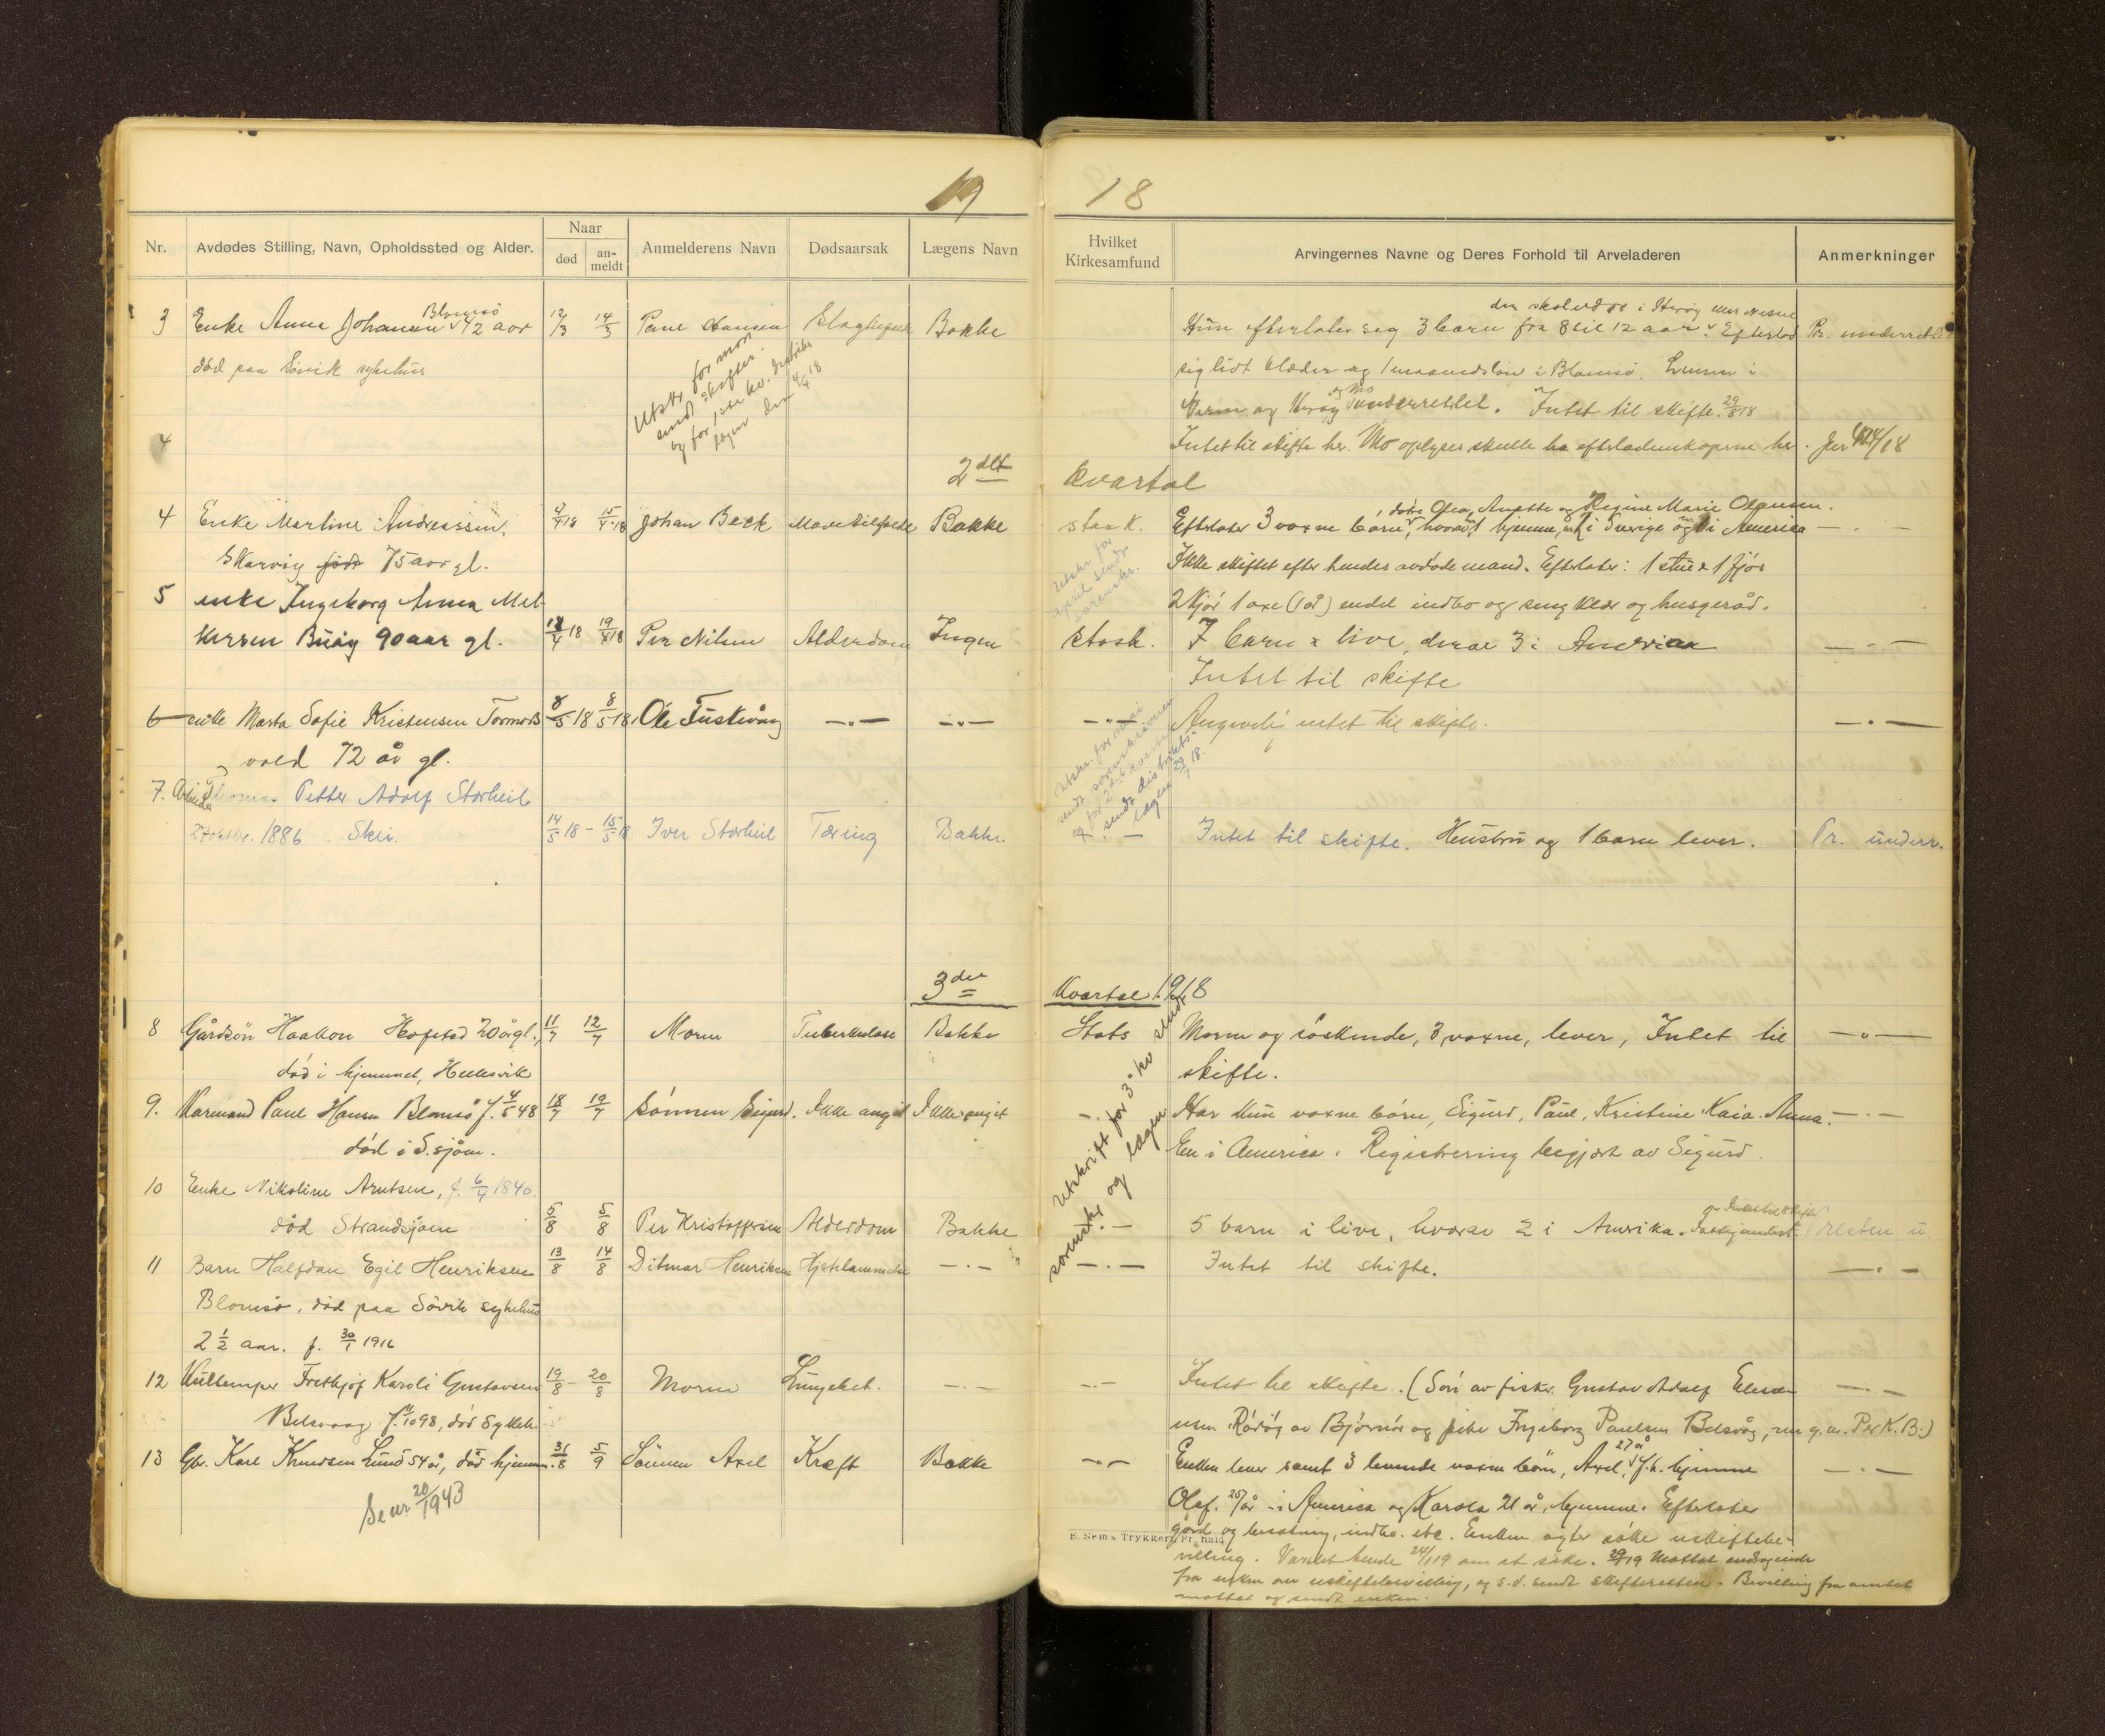 19 18
Nr. Avdødes Stilling, Navn, Opholdssted og Alder. Naar død an-meldt Anmelderens Navn Dødsaarsak Lægens Navn Hvilket Kirkesamfund Arvingernes Navne og Deres Forhold til Arveladeren Anmerkninger
3 Enke Anne Johansen Blomsö 42 aar 12/3 14/3 Paul Hansen Bakke
Hun efterlater seg 3 barn fra 8 til 12 aar. Efterlod Pr. underrettet
død paa Søvik sykehus
sig lidt klæder og 1 maanedsløn i Blomsö.
og Mo underrettet. Intet til skifte. 29/8 18
Utskr. for mars
sendt skifter.
og for 1ste kv. distrikts
lægen den 4/4 18
4
Intet til skifte her. Mo oplyser skulle ha efterladenskaperne her.
2det kvartal
døtre Olea, Anette og Regine Marie Olausen.
4 Enke Martine Andreassen. 4/4 18 15/4 18 Johan Beck Bakke Efterlater 3 voxne børn, hvorav 1 hjemme, en i Sverige og en i America — . —
Skarvig født 75 aar gl.
Ikke skiftet efter hendes avdøde mand. Efterlater: 1 stue & 1 fjøs
Utskr. for
april sendt
sorenskr.
2 kjör 1 oxe (1 år) endel indbo og seng klær og husgeråd.
5 enke Ingeborg Anna Mel-
kersen Buöy 90 aar gl. 18/4 18 19/4 18 Per Nilsen Alderdom Ingen Statsk. 7 barn i live, derav 3 i America — . —
Intet til skifte
6 enke Marta Sofie Kristensen 8/5 18 8/5 18 Ole — . — — . — — . — Angivelig intet til skifte. — . —
vold 72 år gl.
Utskr. for mai
sendt sorenskriveren
og for 2det kvartal
sendt distrikts-
lægen 29/7 18.
7. Arbeider Thomas Petter Adolf Storheil
27 oktbr. 1886 Skei. 14/5 18 – 15/5 18 Iver Storheil Tæring Bakke. — Intet til skifte. Hustru og 1 barn lever. Pr. underr.
3die Kvartal 1918
8 Gårdsøn Haakon Hofstad 20 år gl., 11/7 12/7 Moren Tuberkulose Bakke Stats Moren og søskende, 3 voxne, lever, Intet til — . —
død i hjemmet, Hellesvik
skifte.
9. Kårmand Paul Hansen Blomsö f. 4/5 48 18/7 19/7 Sønnen Sigurd. Ikke angit Ikke angit — . — Har kun voxne börn, Sigurd, Paul, Kristine Kaia. Anna. — . —
død i S. sjøen.
En i America. Registrering begjært av Sigurd.
Utskrift for 3' kv sendt
sorenskr og lægen
10 Enke Nikoline Arntsen, f. 6/4 1840.
død Strandsjøen 5/8 5/8 Per Kristoffersen Alderdom Bakke — . — 5 barn i live, hvorav 2 i Amerika.
11 Barn Halfdan Egil Henriksen 13/8 14/8 Ditmar Henriksen — . — — . — Intet til skifte. — . —
Blomsö, död paa Søvik sykehus
2 1/2 aar. f. 30/1 1916
12 Frethjof Karoli Gustavsen 19/8 – 20/8 Moren — . — — . — Intet til skifte. (Søn av fisker Gustav Adolf — . —
Belsvaag f. 11/10 98, død Sykeh.
Rödöy av Björnör og pike Ingeborg Paulsen Belsvåg, nu g.m. Per K. B.)
13 Gb. Karl Knudsen Lund 54 år, död hjemme. 31/8 5/9 Sönnen Axel Kræft Bakke — . — Enken lever samt 3 levende voxne børn, Axel, 27 år f.h. hjemme — . —
Olaf. 25 år – i America og Karola 21 år, hjemme. Efterlater
Se nr 20/1943
gård og besætning, indbo. etc. Enken agter søke uskiftebe-
villing. Varslet hende 24/1 19 om at søke. 29/1 19 Mottat andragende
fra enken om uskiftebevilling, og s.d. sendt skifteretten. Bevilling fra amtet
mottat og sendt enken.